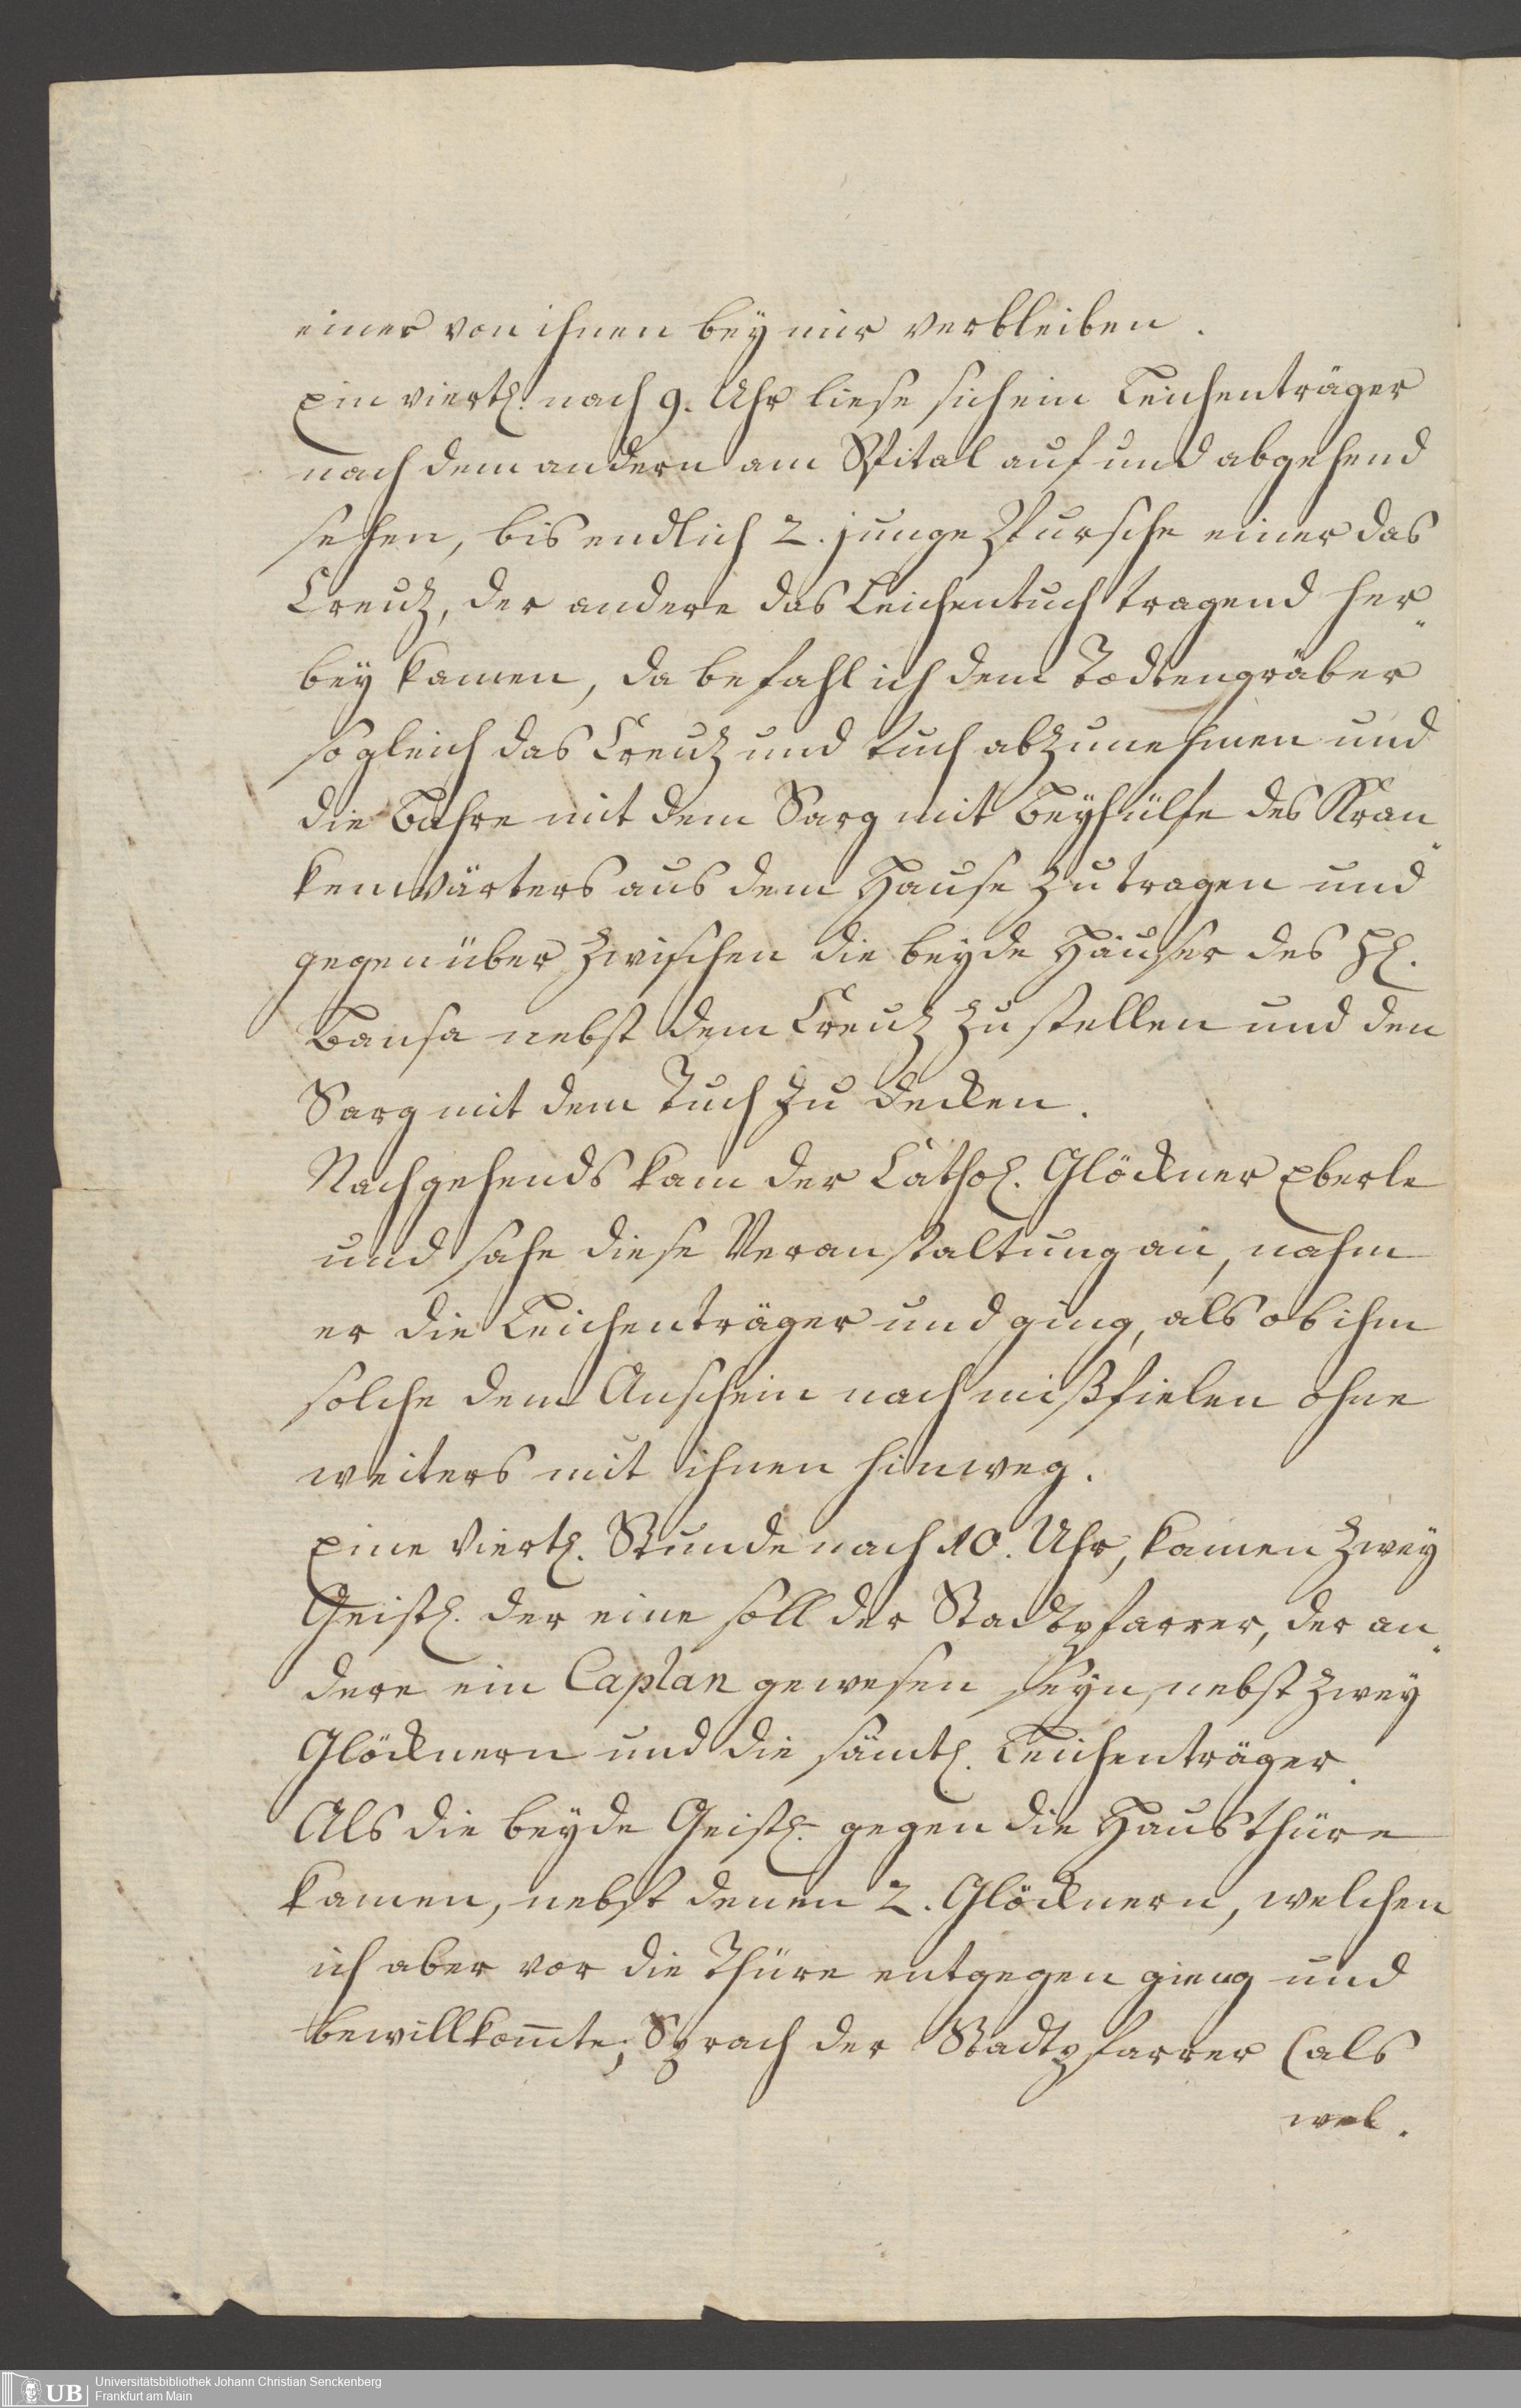 einer von ihnen bey mir verbleiben.
Ein viertl. nach 9. Uhr liese sich ein Leichenträger
nach dem andern am Spital auf und abgehend
sehen, bis endlich 2. junge Pursche einer das
Creutz, der andere das Leichentuch tragend her„
bey kamen, da befahl ich dem Todtengräber
sogleich das Creutz und Tuch abzunehmen und
die Bahre mit dem Sarg mit Beyhülfe des Kran„
kenwärters aus dem Hause zu tragen und
gegenüber zwischen die beyde Häuser des H.
Bansa nebst dem Creutz zu stellen und den
Sarg mit dem Tuch zu decken.
Nachgehends kam der Cathol. Glöckner Eberle
und sahe diese Veranstaltung an, nahm
er die Leichenträger und ging, als ob ihm
solche dem Anschein nach mißfielen ohne
weiters mit ihnen hinweg.
Eine Viertl. Stunde nach 10. Uhr, kamen zwey
Geistl. der eine soll der Stadtpfarrer, der an„
dere ein Caplan gewesen seyn, nebst zwey
Glöcknern und die sämtl. Leichenträger.
Als die beyde Geistl. gegen die Hausthüre
kamen, nebst denen 2. Glöcknern, welchen
ich aber vor die Thüre entgegen gieng und
bewillkom̄te; Sprach der Stadtpfarrer (als
wel.
UB
Universitätsbibliothek Johann Christian Senckenberg
Frankfurt am Main